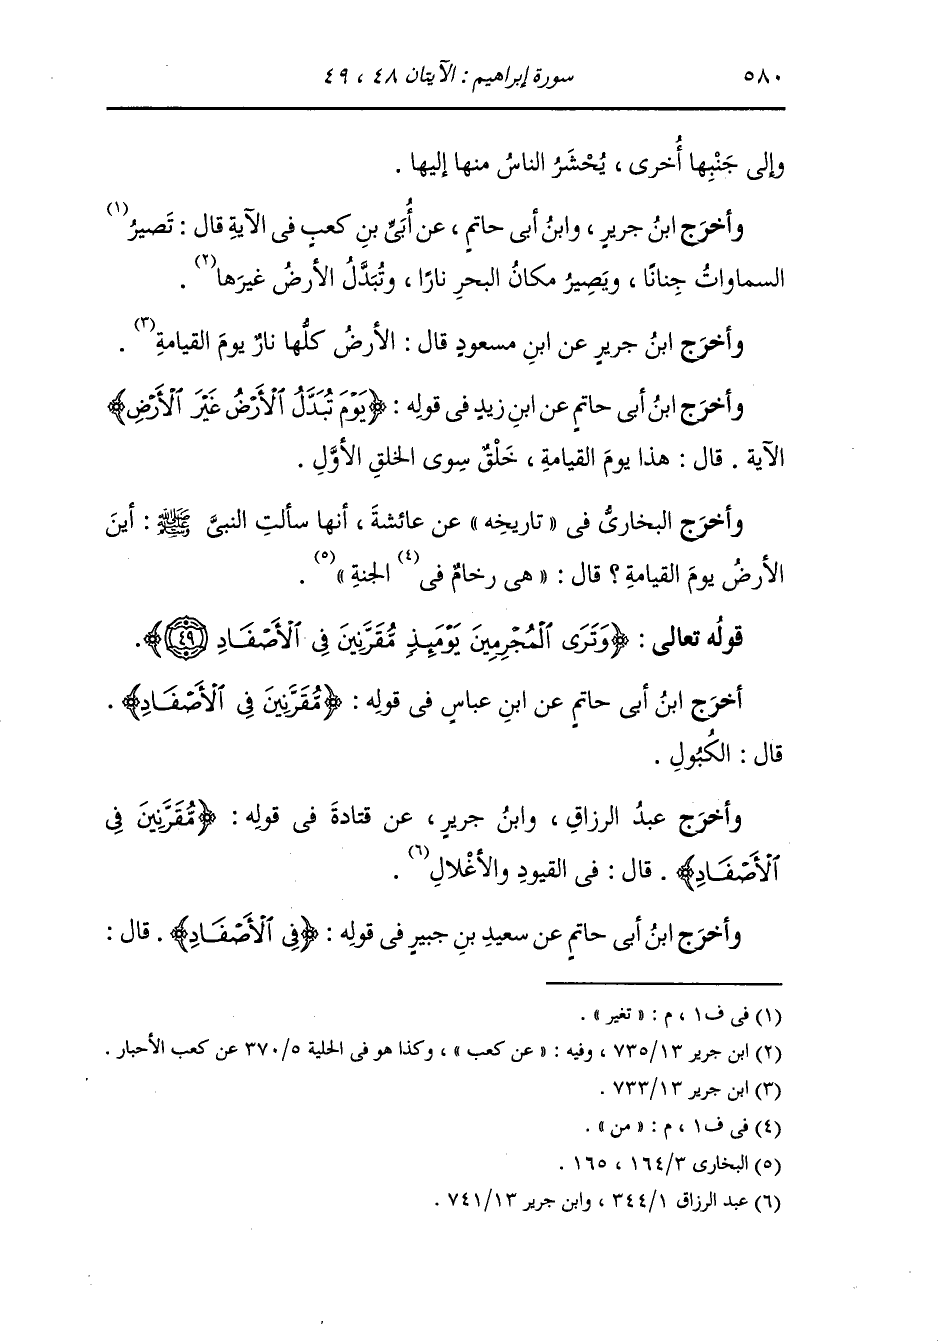 ٥٨٠ سورة إبراهيم : الآيتان ٤٨ ، ٤٩
وإلى جَنْبِها أُخرى ، يُحْشَرُ الناسُ منها إليها .
وأخرَج ابنُ جريرٍ ، وابنُ أبى حاتمٍ ، عن أُبَىِّ بنِ كعبٍ فى الآيةِ قال : تَصيرُ(١)
السماواتُ جِنانًا ، ويَصِيرُ مكانُ البحرِ نارًا ، وتُبَدَّلُ الأرضُ غيرَها(٢) .
وأخرَج ابنُ جريرٍ عن ابنِ مسعودٍ قال : الأرضُ كلُّها نارٌ يومَ القيامةِ(٣) .
وأخرَج ابنُ أبى حاتمٍ عن ابنِ زيدٍ فى قولِه : ﴿يَوْمَ تُبَدَّلُ ٱلْأَرْضُ غَيْرَ ٱلْأَرْضِ﴾
الآية . قال : هذا يومَ القيامةِ ، خَلْقٌ سِوى الخلقِ الأوَّلِ .
وأخرَج البخارىُّ فى « تاريخِه » عن عائشةَ ، أنها سألتِ النبىَّ ﷺ : أينَ
الأرضُ يومَ القيامةِ ؟ قال : « هى رخامٌ فى(٤) الجنةِ »(٥) .
قولُه تعالى : ﴿وَتَرَى ٱلْمُجْرِمِينَ يَوْمَئِذٍ مُّقَرَّنِينَ فِى ٱلْأَصْفَادِ ٤٩﴾.
أخرَج ابنُ أبى حاتمٍ عن ابنِ عباسٍ فى قولِه : ﴿مُّقَرَّنِينَ فِى ٱلْأَصْفَادِ﴾ .
قال : الكُبُولِ .
وأخرَج عبدُ الرزاقِ ، وابنُ جريرٍ ، عن قتادةَ فى قولِه : ﴿مُّقَرَّنِينَ فِى
ٱلْأَصْفَادِ﴾ . قال : فى القيودِ والأغْلالِ(٦) .
وأخرَج ابنُ أبى حاتمٍ عن سعيدِ بنِ جبيرٍ فى قولِه : ﴿فِى ٱلْأَصْفَادِ﴾ . قال :
(١) فى ف١ ، م : « تغير » .
(٢) ابن جرير ٧٣٥/١٣ ، وفيه : « عن كعب » ، وكذا هو فى الحلية ٣٧٠/٥ عن كعب الأحبار .
(٣) ابن جرير ٧٣٣/١٣ .
(٤) فى ف١ ، م : « من » .
(٥) البخارى ١٦٤/٣ ، ١٦٥ .
(٦) عبد الرزاق ٣٤٤/١ ، وابن جرير ٧٤١/١٣ .